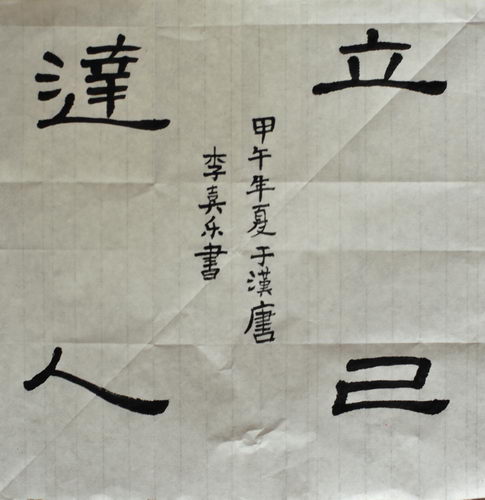 立己
達人
甲午年夏于漢唐
李真乐書